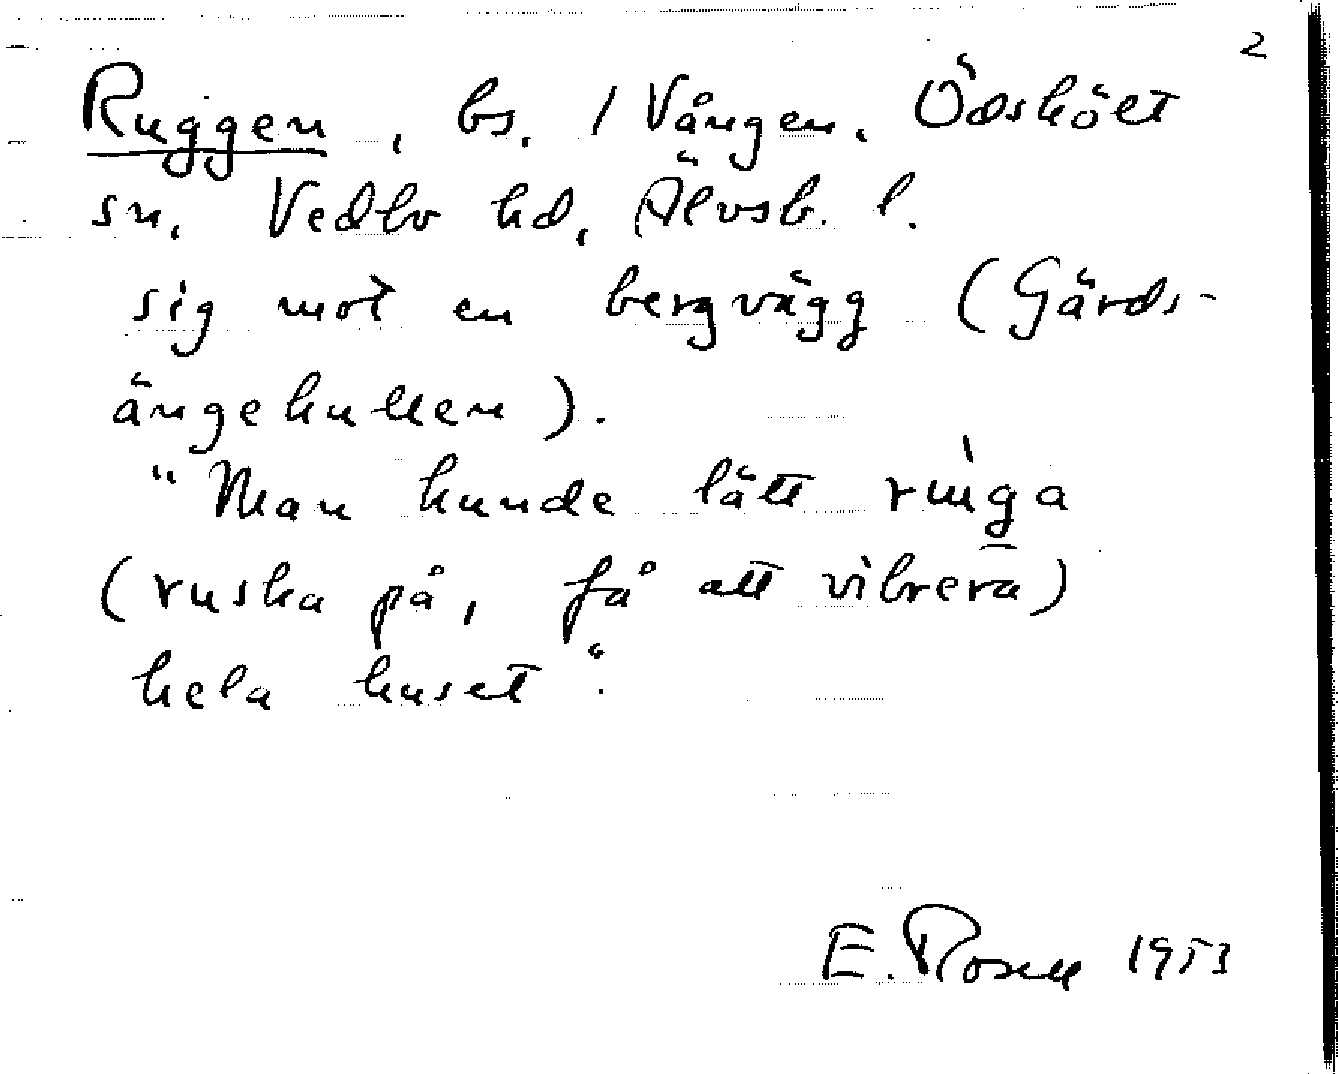 2
Ruggen, bs. / Vången. Ödskölt
sn, Vedbo hd, Älvsb. l.
sig mot en bergvägg (Gärds-
ängekullen).
"Man kunde lätt ringa
(ruska på, få att vibrera)
hela huset".
E. Rosell 1953